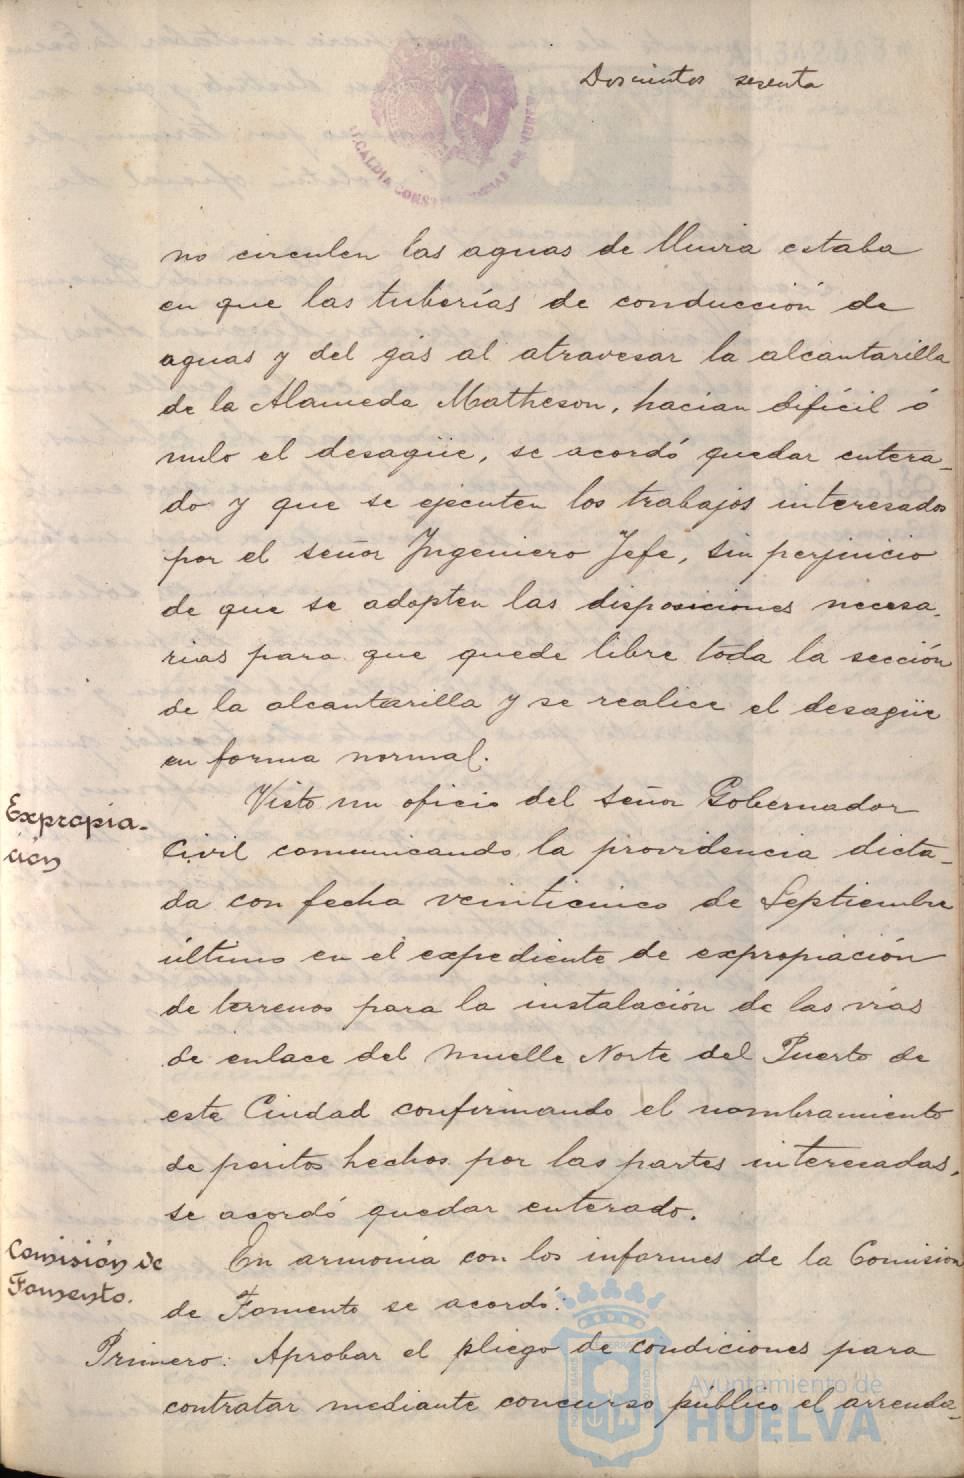 Doscientos sesenta
ALCALDIA CONST
no circulen las aguas de lluvia estaba
en que las tuberías de conducción de
aguas y del gás al atravesar la alcantarilla
de la Alameda Matheson, hacian difícil ó
nulo el desagüe, se acordó quedar entera-
do y que se ejecuten los trabajos interesados
por el señor Ingeniero Jefe, sin perjuicio
de que se adopten las disposiciones necesa-
rias para que quede libre toda la sección
de la alcantarilla y se realice el desagüe
en forma normal.
Expropia-
ción
Visto un oficio del señor Gobernador
Civil comunicando la providencia dicta-
da con fecha veinticinco de Septiembre
último en el expediente de expropiación
de terrenos para la instalación de las vías
de enlace del muelle Norte del Puerto de
este Ciudad confirmando el nombramiento
de peritos hechos por las partes interesadas,
se acordó quedar enterado.
Comisión de
Fomento.
En armonía con los informes de la Comision
de Fomento se acordó:
Primero: Aprobar el pliego de condiciones para
contratar mediante concurso público el arrenda-
Ayuntamiento de
HUELVA